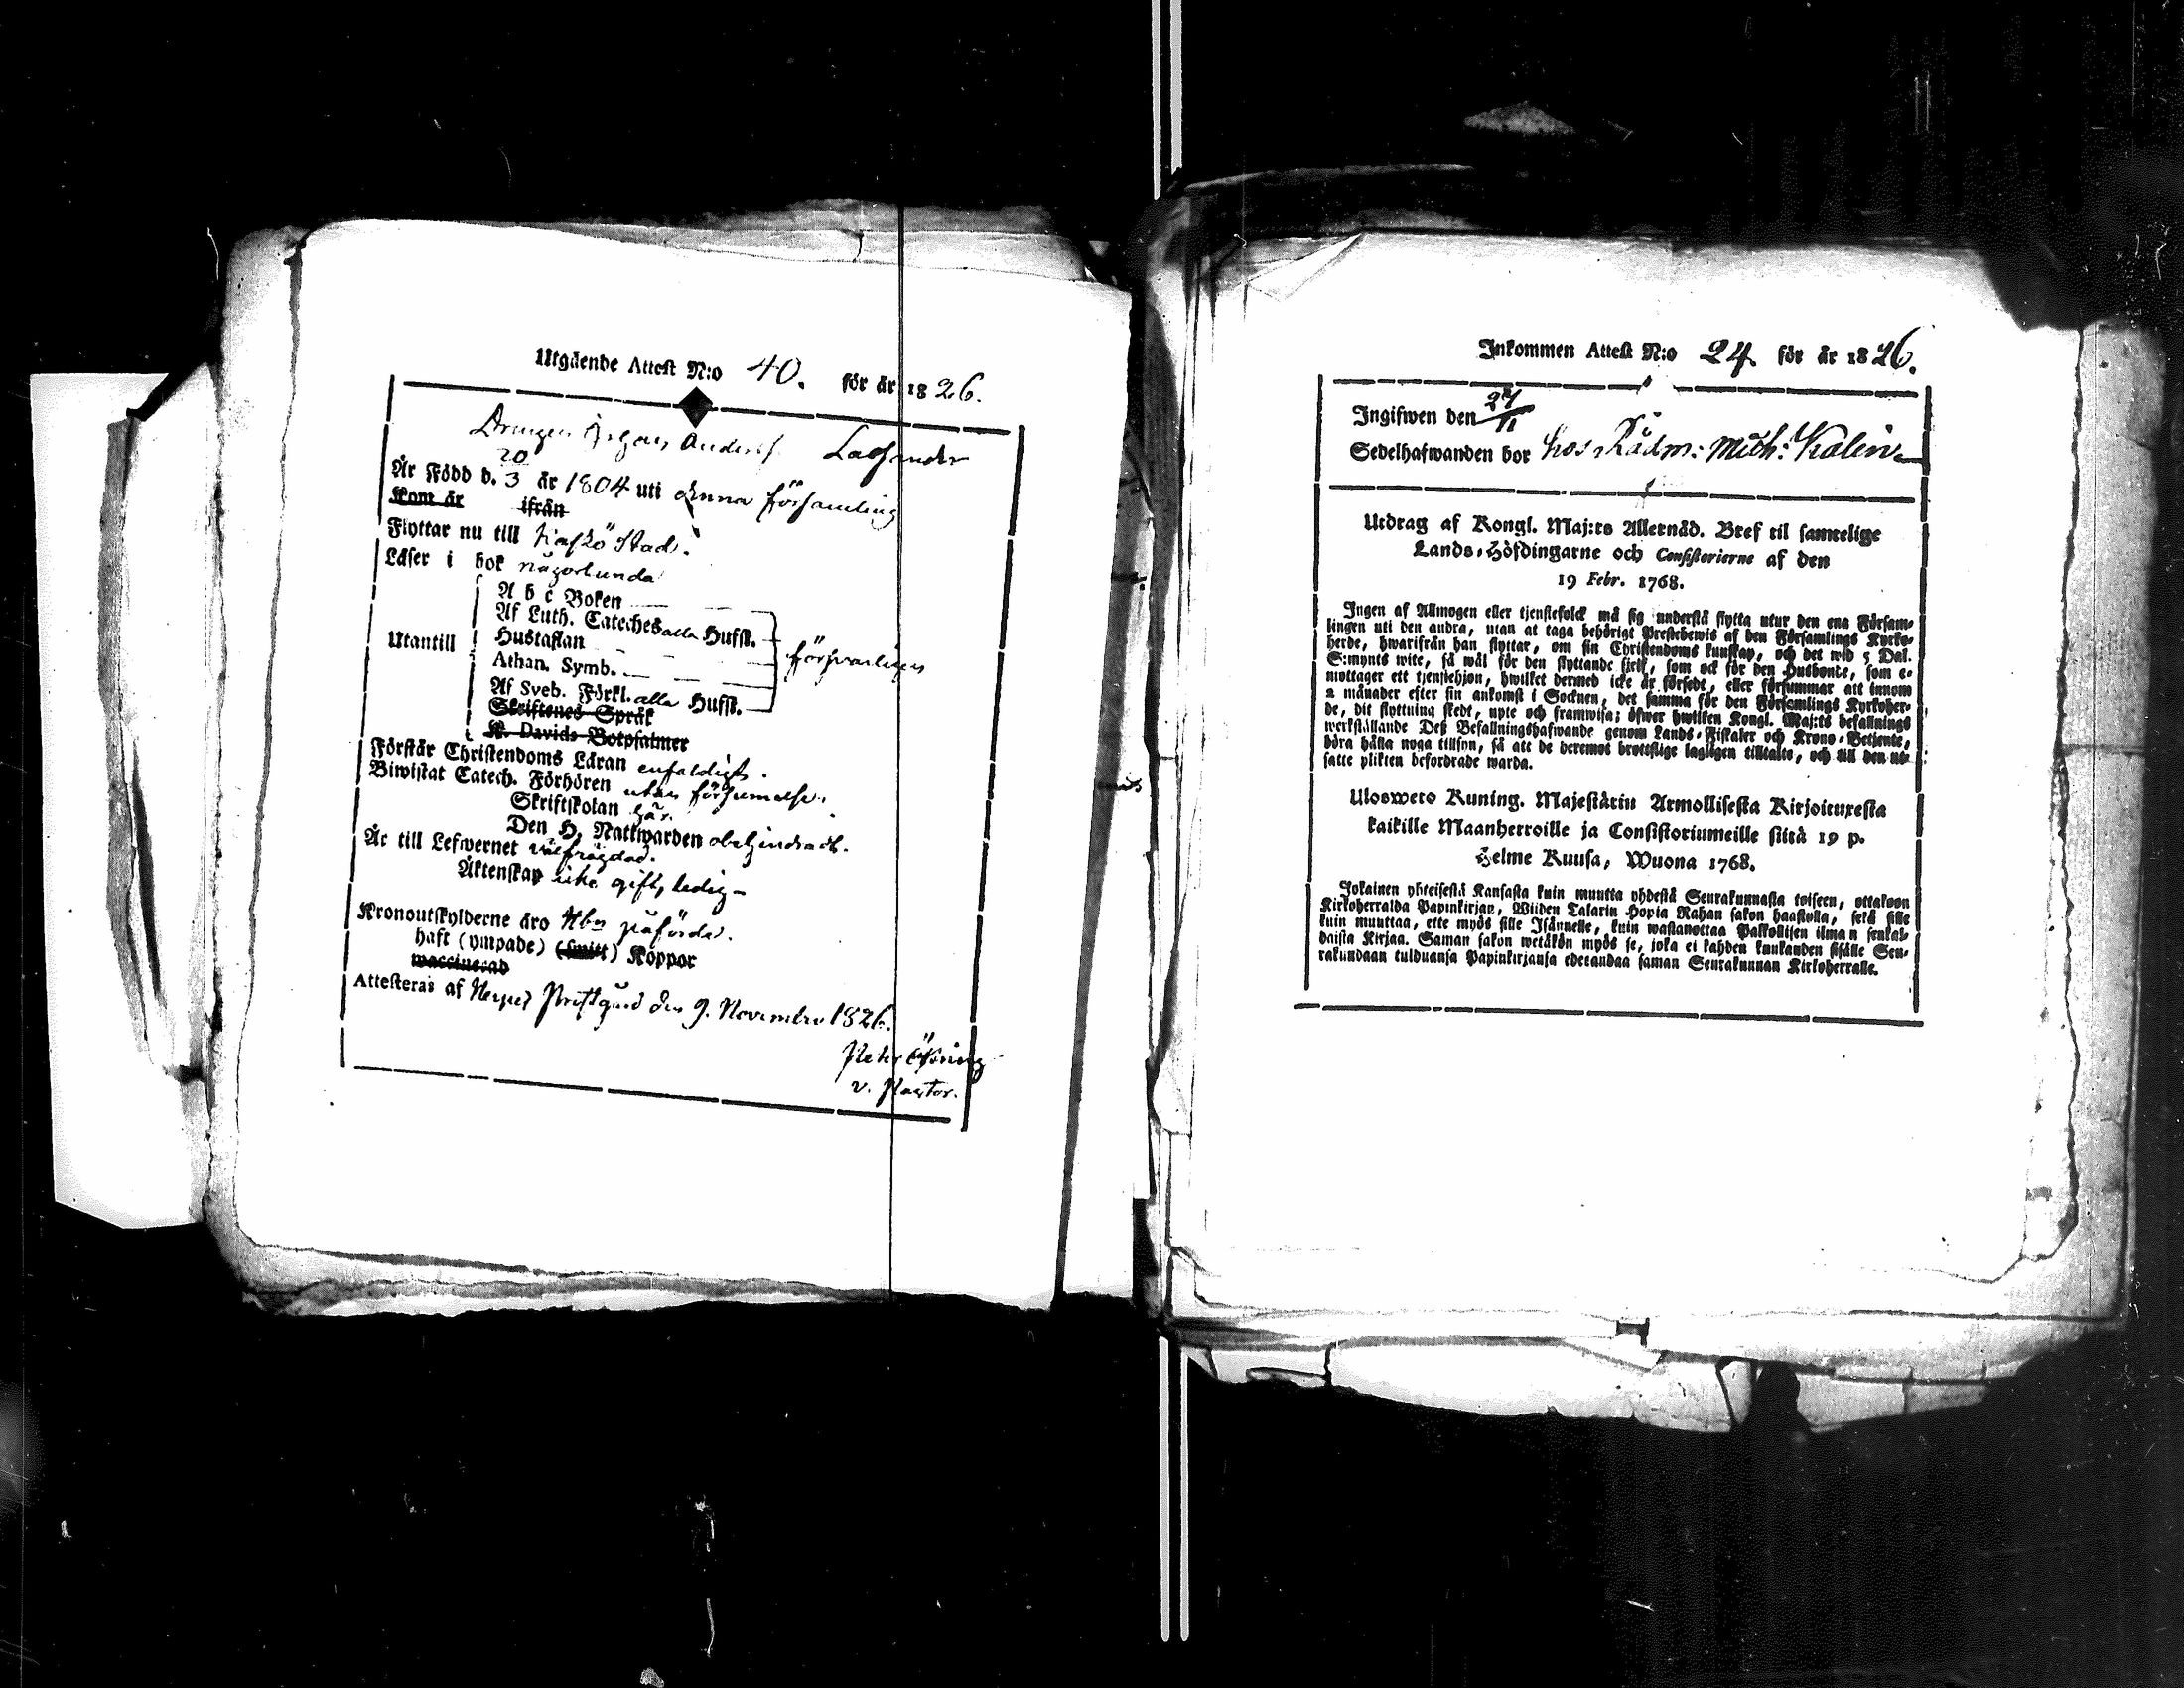 Utgående Attest N:o 40. för år 1826.
Drängen Johan Anderss. Lassander
Är Född d. 20/3 år 1804 uti denna församling
Kom år ifrån
Flyttar nu till Kaskö Stad.
Läser i bok någorlunda
Utantill
A b c Boken
Af Luth. Cateches alla Hufst.
Hustaflan
Athan. Symb.
Af Sveb. Förkl. alla Hufst.
försvarligen
Skriftenes Språk
K. Davids Botpsalmer
Förstår Christendoms Läran enfaldigt.
Biwistat Catech. Förhören utan försummelse.
Skriftskolan här.
Den H. Nattwarden obehindradt.
Är till Lefwernet välfrägdad.
Äktenskap icke gift, ledig
Kronoutskylderne äro påförde.
haft (ympade) (smitt) Koppor
waccinerad
Attesteras af Nerpes Prestgård den 9. November 1826.
Petr
v. Pastor.
Inkommen Attest N:o 24. för år 1826.
Ingifwen den 27/11
Sedelhafwanden bor hos Rådm: Mich: Kalin
Utdrag af Kongl. Maj:ts Allernåd. Bref til samtelige
Lands-Höfdingarne och Consistorierne af den
19 Febr. 1768.
Ingen af Allmogen eller tjenstefolck må sig understå flytta utur den ena Församlingen
lingen uti den andra, utan at taga behörigt Prestebewis af den Församlings Kyrko-
herde, hwarifrån han flyttar, om sin Christendoms kunskap, och det wid 5 Dal.
S:mynts wite, så wäl för den flyttande sjelf, som ock för den Husbonte, som e-
mottager ett tjenstehjon, hwilket dermed icke är försedt, eller försummar att innom
2 månader efter sin ankomst i Socknen, det samma för den Församlings Kyrkoher-
de, dit flyttning skedt, upte och framwisa; öfwer hwilken Kongl. Maj:ts befallnings
werkställande Deß Befallningshafwande genom Lands-Fiskaler och Krono-Betjente,
böra hålla noga tillsyn, så att de deremot brottslige lagligen tilltalte, och till den ut-
satte plikten befordrade warda.
Ulosweto Kuning. Majestätin Armollisesta Kirjoituxesta
kaikille Maanherroille ja Consistoriumeille siitä 19 p.
Helme Kuusa, Wuona 1768.
Jokainen yhteisestä Kansasta kuin muutta yhdestä Seurakunnasta toiseen, ottakoon
Kirkoherralda Papinkirjan, Wiiden Talarin Hopia Rahan sakon haastolla, sekä sille
kuin muuttaa, ette myös sille Isännelle, kuin wastanottaa Palkollisen ilman senkal-
daista Kirjaa. Saman sakon wetäkön myös se, joka ei kahden kuukauden sisälle Seu-
rakundaan tulduansa Papinkirjansa edesandaa saman Seurakunnan Kirkoherralle.